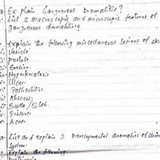 Explain Gangrenous Dermatitis?
List 5 Macroscopic and microscopic features of
Gangrenous dermatitis
Explain the following miscellaneous lesions of skin
Vesicle
Pustule
Erosion
Hyperkeratosis
Ulcer
Folliculitis
Abscess
Scale
Fissure
Acne
List and explain 3 Developmental Anomalies of
System
Explain the following